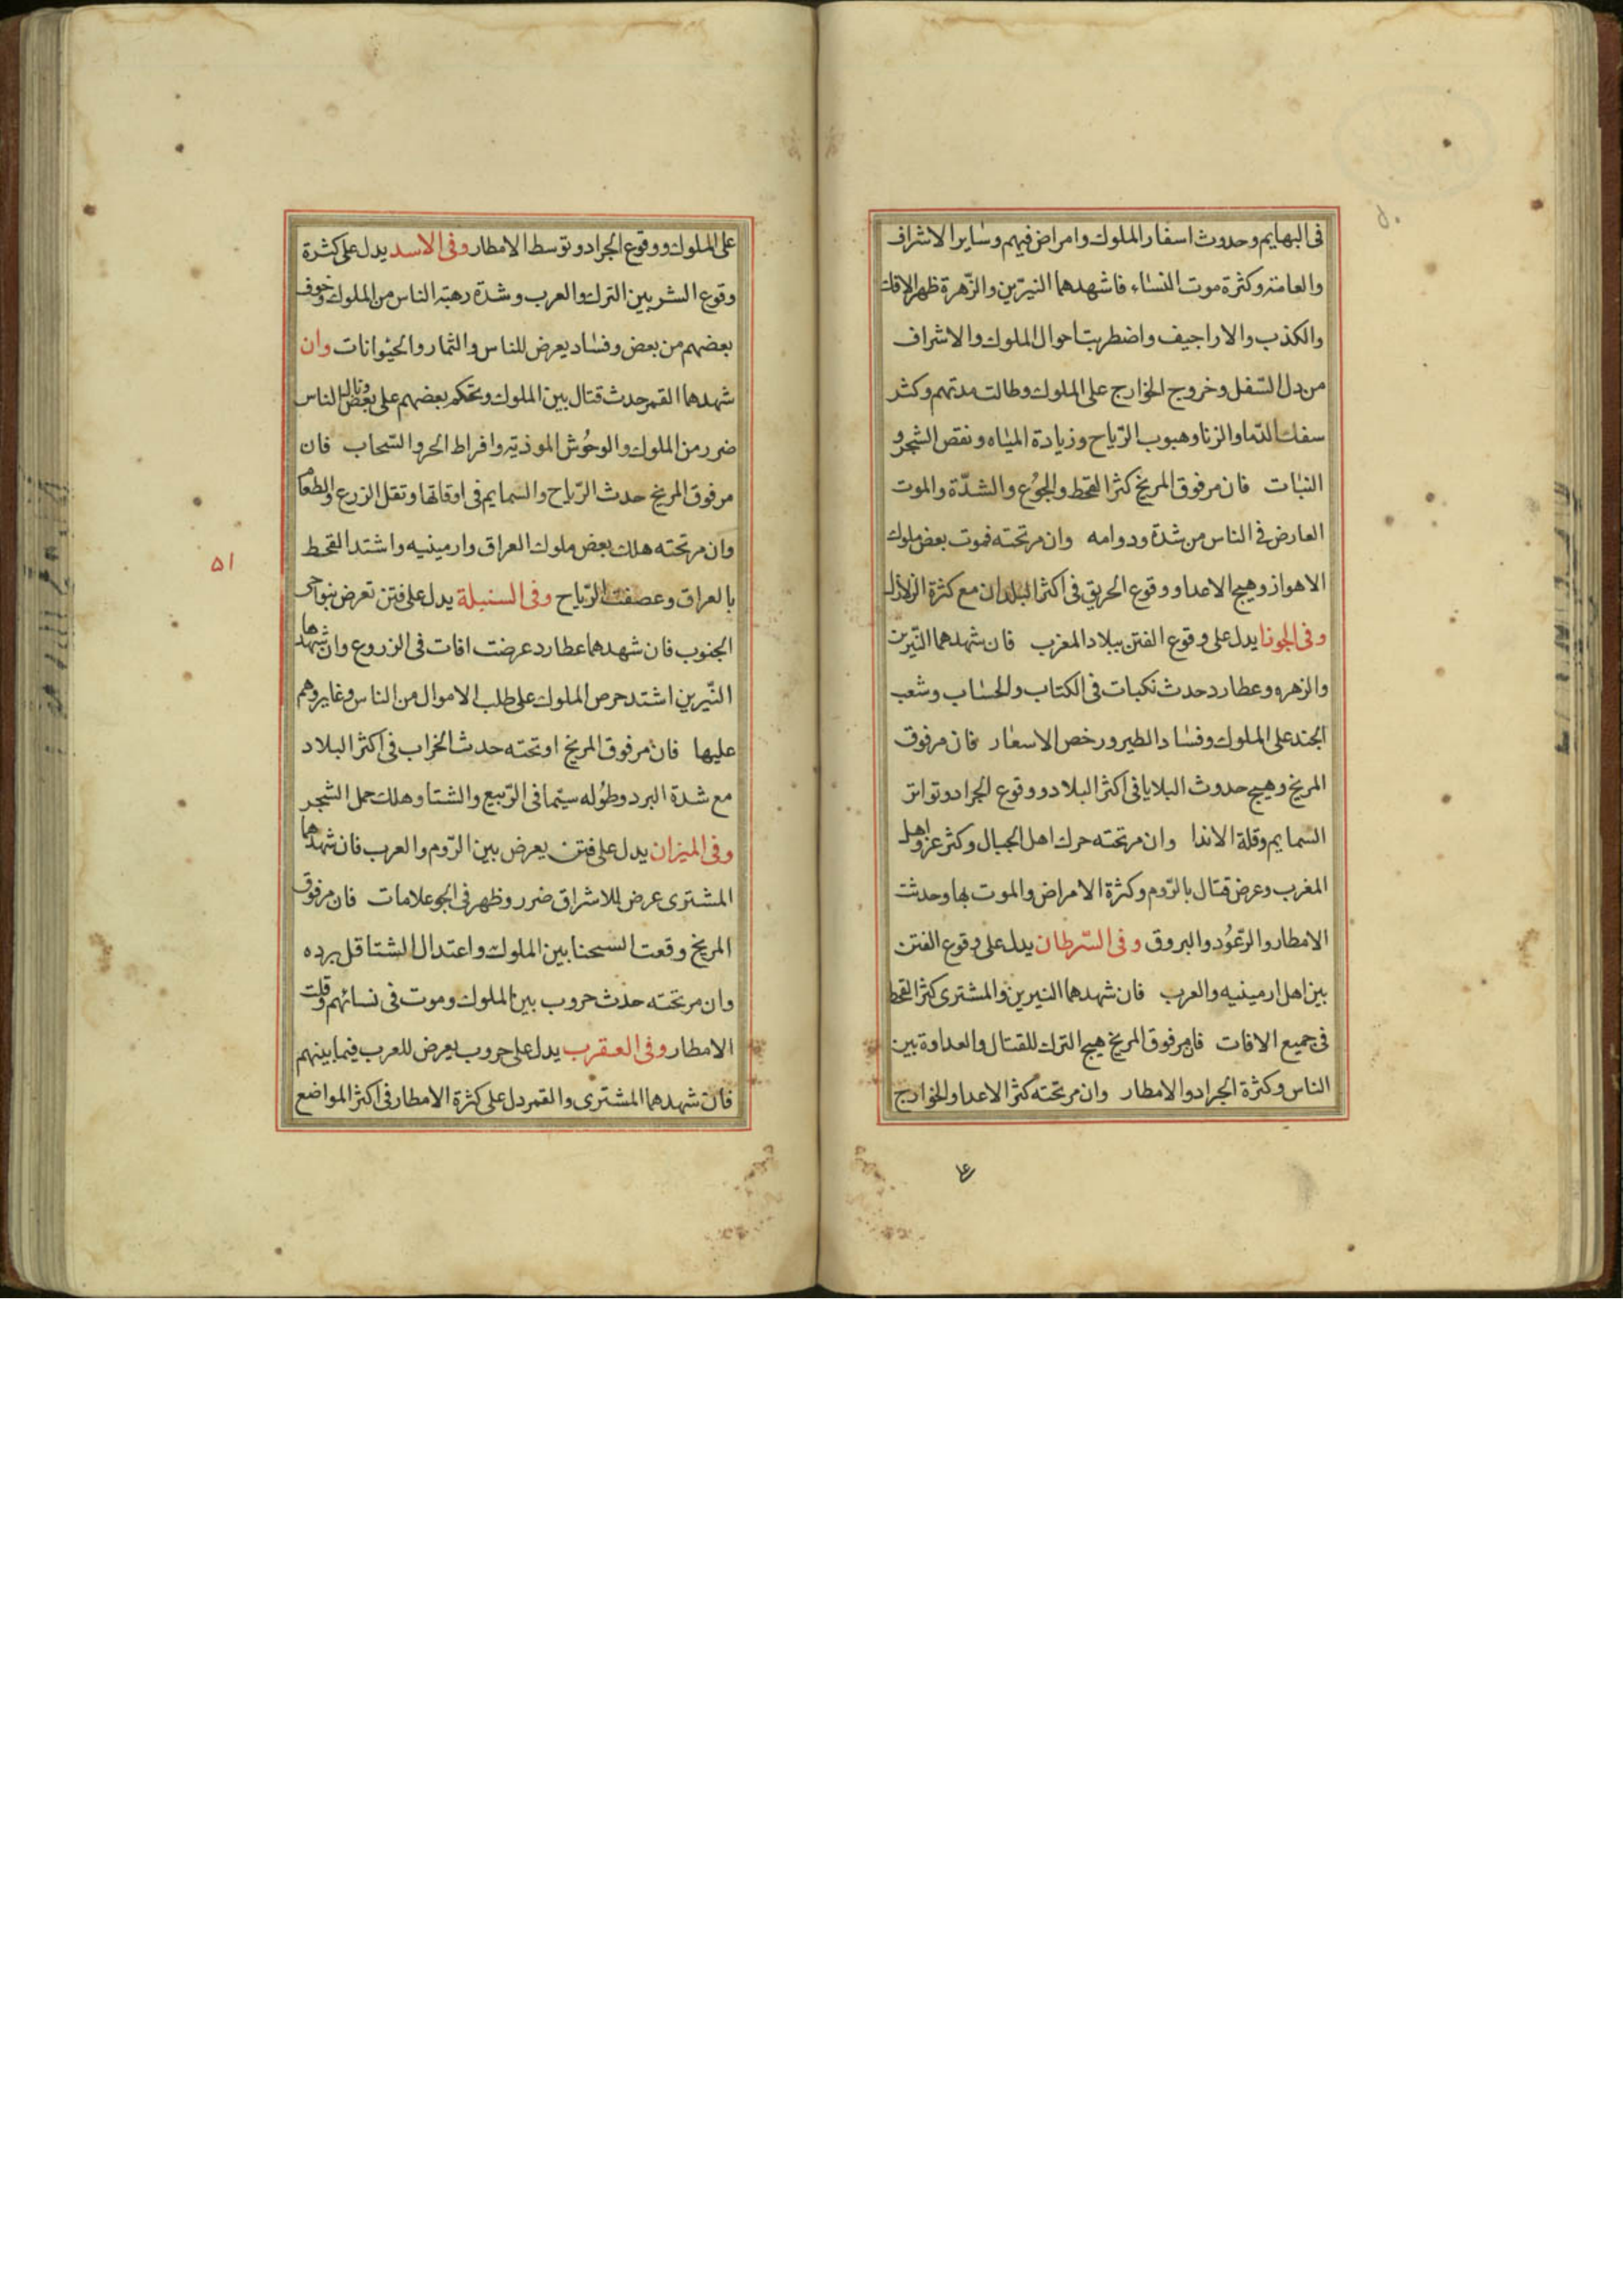 فى البهايم وحدوث اسفار الملوك وامراض فيهم وساير الاشراف
والعامة وكثرة موت النساء فاشهدهما النيرّين والزّهرة ظهر الافك
والكذب والاراجيف واضطربت احوال الملوك والاشراف
من دل السّفل وخروج الخوارج على الملوك وطالت مدتهم وكثر
سفك الدّما والزنا وهبوب الرّياح وزيادة المياه ونقص الشجر و
النبات فان مر فوق المريخ كثر القحط والجوُع والشدّة والموت
العارض فى الناس من شدة ودوامه وان مر تحته فموت بعض ملوك
الاهواز وهيج الاعدا ووقوع الحريق فى اكثر البلدان مع كثرة الزلازل
وفى الجوزا يدل على وقوع الفتن ببلاد المغرب فان شهدهما النيّرين
والزهره وعطارد حدث نكبات فى الكتاب والحساب وشعب
الجند على الملوك وفساد الطير ورخص الاسعار فان مر فوق
المريخ وهيج حدوث البلايا فى اكثر البلاد ووقوع الجراد وتواتر
السمايم وقلة الاندا وان مر تحته حرك اهل الجبال وكثر عزو اهل
المغرب وعرض قتال بالرّوم وكثرة الامراض والموت بها وحدثت
الامطار والرّعُود والبروق وفى السّرطان يدل على وقوع الفتن
بين اهل ارمينيه والعرب فان شهدهما النيرين والمشترى كثر القحط
فى جميع الافات فان مر فوق المريخ هيج الترك للقتال والعداوة بين
الناس وكثرة الجراد والامطار وان مر تحته كثر الاعدا والخوارج
على الملوك ووقوع الجراد وتوسط الامطار وفى الاسد يدل على كثرة
وقوع الشر بين الترك والعرب وشدّة رهبة الناس من الملوك وخوف
بعضهم من بعض وفساد يعرض للناس والثمار والحيوانات وان
شهدهما القمر حدث قتال بين الملوك وتحكم بعضهم على بعض ونال الناس
ضرر من الملوك والوحُوش الموذية وافراط الحر والسّحاب فان
مر فوق المريخ حدث الرّياح والسمايم فى اوقاتها وتقل الزرع والطعام
وان مر تحته هلك بعض ملوك العراق وارمينيه واشتد القحط
بالعراق وعصفت الرّياح وفى السنبلة يدل على فتن تعرض بنواحى
الجنوب فان شهدهما عطارد عرضت افات فى الزروع وان شهدهما
النيّرين اشتد حرص الملوك على طلب الاموال من الناس وغايروهم
عليها فان مر فوق المريخ او تحته حدث الخراب فى اكثر البلاد
مع شدة البرد وطوُله سيّما فى الرّبيع والشتا وهلك حمل الشجر
وفى الميزان يدل على فتن يعرض بين الرّوم والعرب فان شهدهما
المشترى عرض للاشراق ضرر وظهر فى الجو علامات فان مر فوق
المريخ وقعت السحنا بين الملوك واعتدال الشتا قل برده
وان مر تحته حدث حروب بين الملوك وموت فى نسائهم وقلت
الامطار وفى العقرب يدل على حروب يعرض للعرب فيما بينهم
فان شهدهما المشترى والقمر دل على كثرة الامطار فى اكثر المواضع
٥١